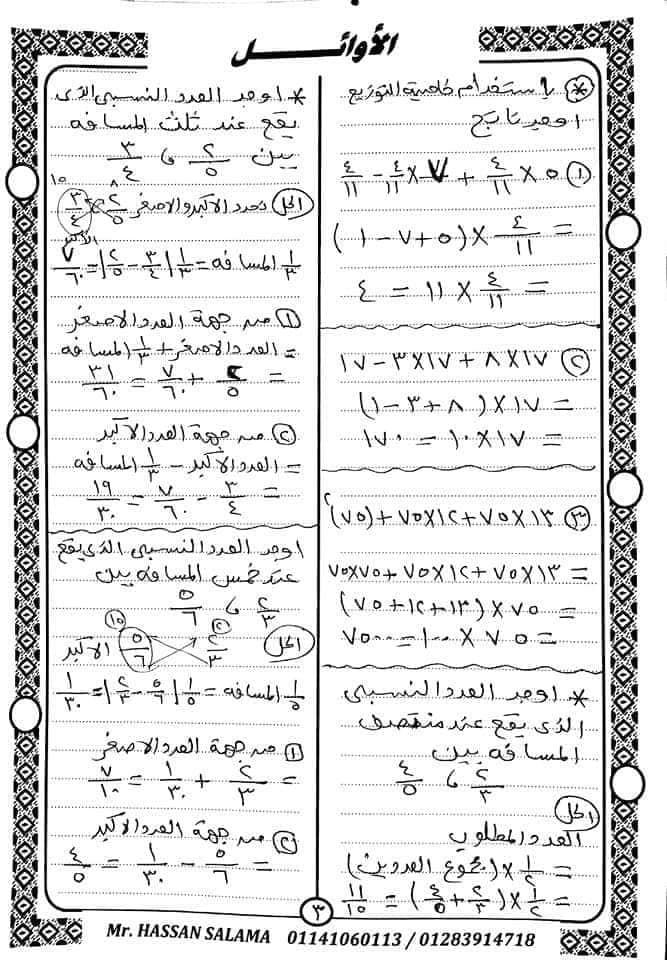 الأوائـــل
* باستخدام خاصية التوزيع
اوجد ناتج
① ٥ × ٤/١١ + ٧ × ٤/١١ - ٤/١١
= ٤/١١ × (٥ + ٧ - ١)
= ٤/١١ × ١١ = ٤
② ١٧ × ٨ + ١٧ × ٣ - ١٧
= ١٧ × (٨ + ٣ - ١)
= ١٧ × ١٠ = ١٧٠
③ ١٣ × ٧٥ + ١٢ × ٧٥ + (٧٥)²
= ١٣ × ٧٥ + ١٢ × ٧٥ + ٧٥ × ٧٥
= ٧٥ × (١٣ + ١٢ + ٧٥)
= ٧٥ × ١٠٠ = ٧٥٠٠
* اوجد العدد النسبى
الذى يقع عند منتصف
المسافه بين
٢/٣ ، ٤/٥
الحل
العدد المطلوب
= ١/٢ × (مجموع العددين)
= ١/٢ × (٢/٣ + ٤/٥) = ١١/١٥
* اوجد العدد النسبى الذى
يقع عند ثلث المسافه
بين ٢/٥ ، ٣/٤
١٥ ٨
الحل نحدد الأكبر والاصغر ٢/٥ ٣/٤
الأكبر
١/٣ المسافه = ١/٣ |٣/٤ - ٢/٥| = ٧/٦٠
① من جهة العدد الاصغر
= العدد الاصغر + ١/٣ المسافه
= ٢/٥ + ٧/٦٠ = ٣١/٦٠
② من جهة العدد الاكبر
= العدد الأكبر - ١/٣ المسافه
= ٣/٤ - ٧/٦٠ = ١٩/٣٠
اوجد العدد النسبى الذى يقع
عند خمس المسافه بين
٢/٣ ، ٥/٦
الحل ٢/٣ ٥/٦ الأكبر
١/٥ المسافه = ١/٥ |٥/٦ - ٢/٣| = ١/٣٠
① من جهة العدد الاصغر
= ٢/٣ + ١/٣٠ = ٧/١٠
② من جهة العدد الاكبر
= ٥/٦ - ١/٣٠ = ٤/٥
٣
Mr. HASSAN SALAMA 01141060113 / 01283914718